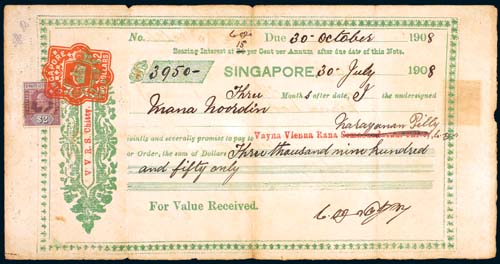 No. Due 30 - October 1908
Bearing Interest at 15 per Cent per Annum after due date of this Note.
$ 3950 - SINGAPORE 30 - July 1908
Three
Months after date, I the undersigned
Mana Noordin
Narayanan Pilly
jointly and severally promise to pay to Vayna Vienna Rana
or Order, the sum of Dollars Three thousand nine hundred
and fifty only
For Value Received.
SINGAPORE
$2
V. V. R. S. Chitty.